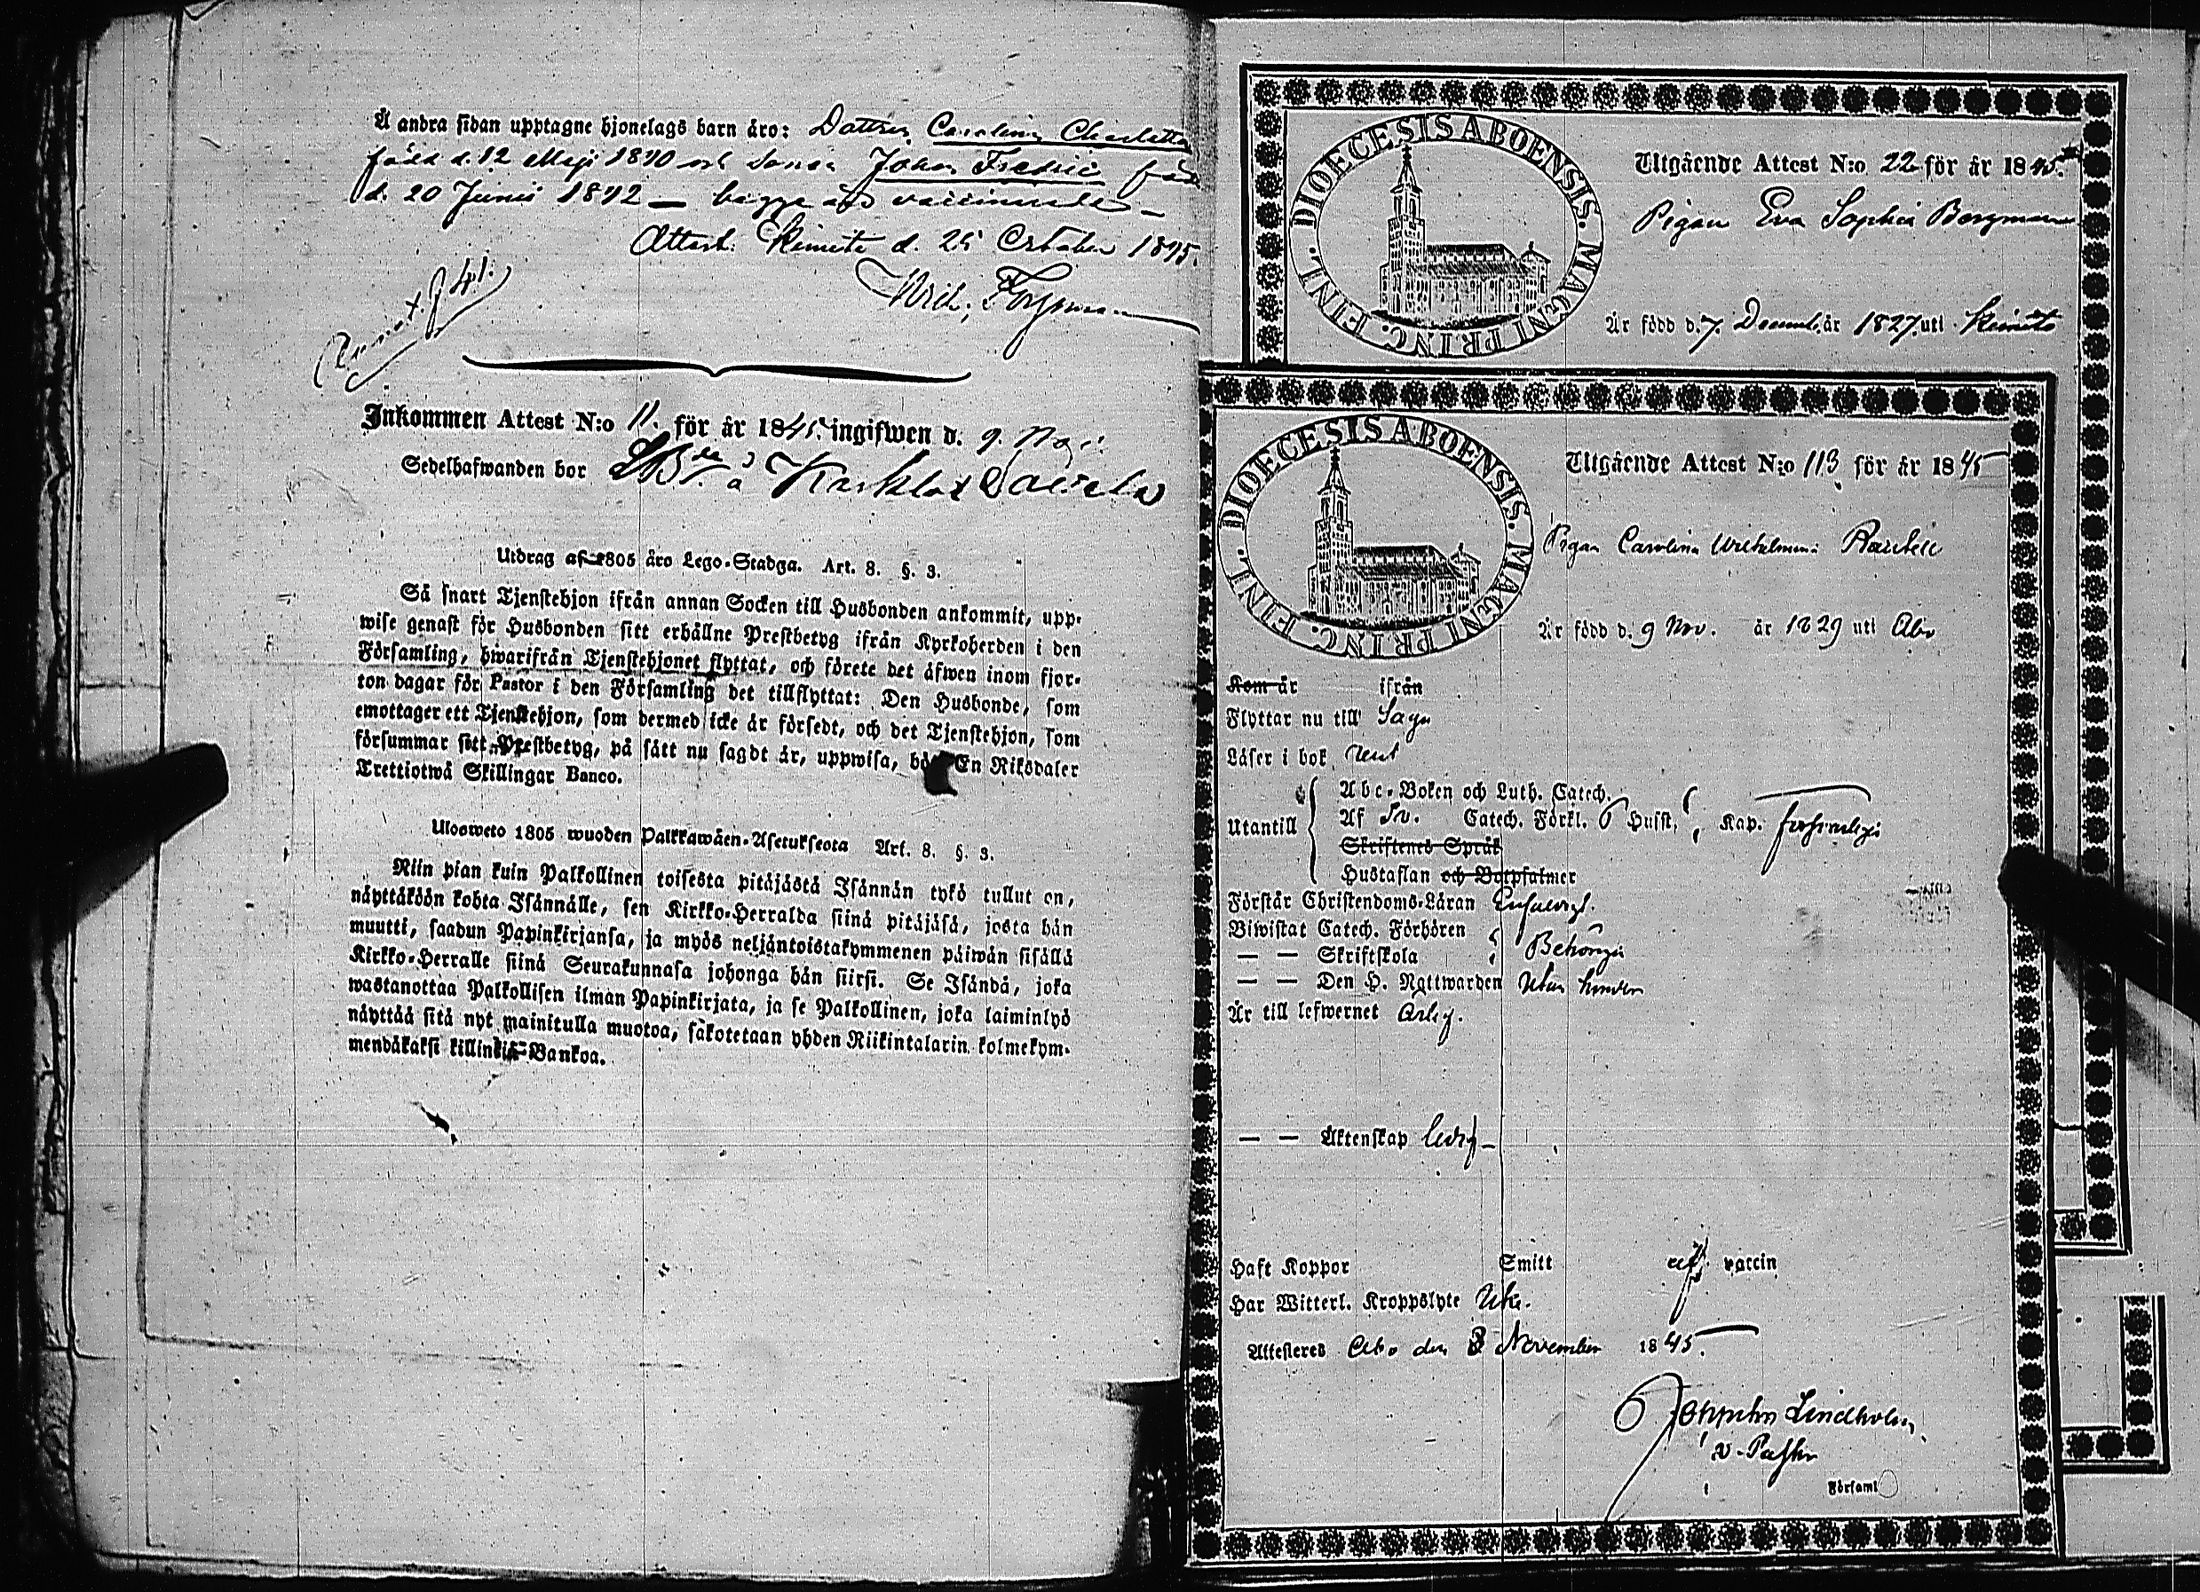 Å andra sidan upptagne hjonelags barn äro: Dottren Carolina Charlotta
född d. 12 Maji 1840 och Sonen Johan Fredric
d. 20 Junii 1842 — bägge vaccinerade —
Attest. Kimito d. 25 October 1845.
Inkommen Attest N:o 11. för år 1845. ingifwen d. 9. Nov.
Sedelhafwanden bor å
Utdrag af 1805 åro Lego-Stadga. Art. 8. §. 3.
Så snart Tjenstehjon ifrån annan Socken till Husbonden ankommit, upp-
wise genast för Husbonden sitt erhållne Prestbetyg ifrån Kyrkoherden i den
Församling, hwarifrån Tjenstehjonet flyttat, och förete det äfwen inom fjor-
ton dagar för Pastor i den Församling det tillflyttat: Den Husbonde, som
emottager ett Tjenstehjon, som dermed icke är försedt, och det Tjenstehjon, som
försummar sitt Prestbetyg, på sätt nu sagdt är, uppwisa, En Riksdaler
Trettiotwå Skillingar Banco.
Ulosweto 1805 wuoden Palkkawäen-Asetuksesta Art. 8. §. 3.
Niin pian kuin Palkollinen toisesta pitäjästä Isännän tykö tullut on,
näyttäköön kohta Isännälle, sen Kirkko-Herralda siinä pitäjäsä, josta hän
muutti, saadun Papinkirjansa, ja myös neljäntoistakymmenen päiwän sisällä
Kirkko-Herralle siinä Seurakunnasa johonga hän siirsi. Se Isändä, joka
wastanottaa Palkollisen ilman Papinkirjata, ja se Palkollinen, joka laiminlyö
näyttää sitä nyt mainitulla muotoa, sakotetaan yhden Riikintalarin kolmekym-
mendäkaksi killinkiä Bankoa.
DIOECESIS ABOENSIS. MAGNI PRINC. FINL.
Utgående Attest N:o 22 för år 1845.
Pigan Eva Sophia Bergman
Är född d. 7. Decemb. år 1827. uti Kimito
DIOECESIS ABOENSIS. MAGNI PRINC. FINL.
Utgående Attest N:o 113 för år 1845
Pigan Carolina Wilhelmina
Är född d. 9 Nov. år 1829 uti Åbo
Kom år ifrån
Flyttar nu till Sagu
Läser i bok rent
Utantill
Abc-Boken och Luth. Catech.
Af Sv. Catech. Förkl. 6 Hufst. Kap. försvarligt
Skriftenes Språk
Hustaflan och Botpsalmer
Förstår Christendoms-Läran Enfaldigt.
Biwistat Catech. Förhören
— — Skriftskola Behörigen
— — Den H. Nattwarden Utan hinder
Är till lefwernet ärlig.
— — Äktenskap ledig —
Haft Koppor Smitt vaccin
Har Witterl. Kroppslyte Icke.
Attesteres Åbo den 8 November 1845.
Lindholm
v. Pastor
i Församl